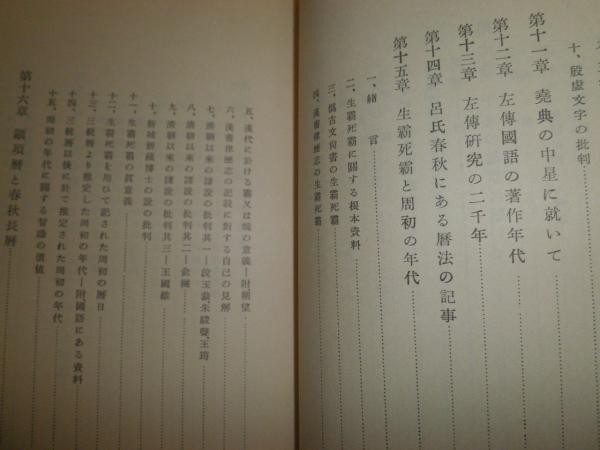 十、殷虚文字の批判
第十一章 堯典の中星に就いて
第十二章 左傳國語の著作年代
第十三章 左傳研究の二千年
第十四章 呂氏春秋にある曆法の記事
第十五章 生霸死霸と周初の年代
一、緒言
二、生霸死霸に關する根本資料
三、僞古文尙書の生霸死霸
四、漢書律曆志の生霸死霸
五、漢代に於ける霸又は魄の意義—附朏望
六、漢書律曆志の記載に對する自己の見解
七、漢朝以來の諸說の批判其一—段玉裁、朱駿聲、王筠
八、漢朝以來の諸說の批判其二—兪樾
九、漢朝以來の諸說の批判其三—王國維
十、新城新藏博士の說の批判
十一、生霸死霸の眞意義
十二、生霸死霸を用ひて記された周初の曆日
十三、三統曆より推定した周初の年代—附國語にある資料
十四、三統曆以後に於て推定された周初の年代
十五、周初の年代に關する智識の價値
第十六章 顓頊曆と春秋長曆